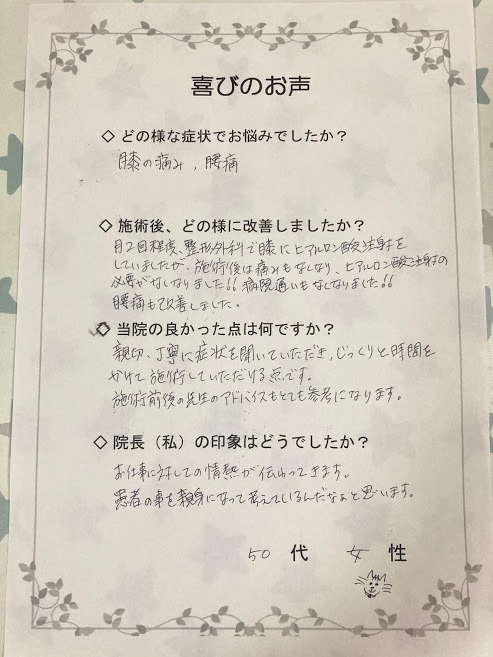 喜びのお声
◇ どの様な症状でお悩みでしたか？
膝の痛み，腰痛
◇ 施術後、どの様に改善しましたか？
月2回程度、整形外科で膝にヒアルロン酸注射を
していましたが、施術後は痛みもなくなり、ヒアルロン酸注射の
必要がなくなりました!! 病院通いもなくなりました!!
腰痛も改善しました。
◇ 当院の良かった点は何ですか？
親切、丁寧に症状を聞いていただき、じっくりと時間を
かけて施術していただける点です。
施術前後の先生のアドバイスもとても参考になります。
◇ 院長（私）の印象はどうでしたか？
お仕事に対しての情熱が伝わってきます。
患者の事を親身になって考えているんだなぁと思います。
50 代 女 性